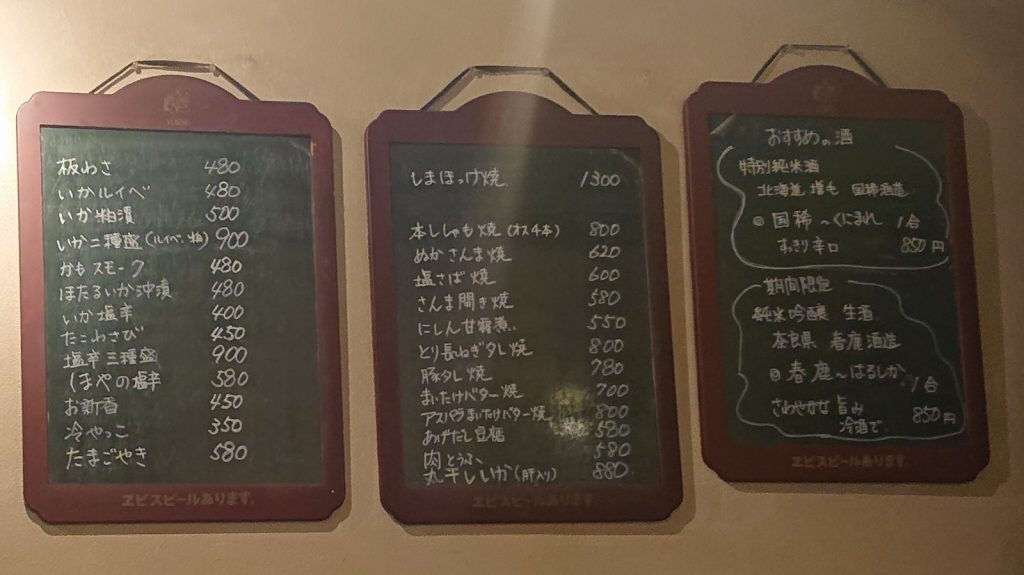 板わさ 480
いかルイベ 480
いか粕漬 500
いか二種盛(ルイベ、粕) 900
かもスモーク 480
ほたるいか沖漬 480
いか塩辛 400
たこわさび 450
塩辛三種盛 900
しまやの塩辛 580
お新香 450
冷やっこ 350
たまごやき 580
ヱビスビールあります。
しまほっけ焼 1300
本ししゃも焼(オス4本) 800
ぬかさんま焼 620
塩さば焼 600
さんま開き焼 580
にしん甘露煮 550
とり長ねぎタレ焼 800
豚タレ焼 780
まいたけバター焼 700
アスパラまいたけバター焼 800
あげだし豆腐 580
肉とうふ 580
丸干しいか(肝入り) 880
ヱビスビールあります。
おすすめの酒
特別純米酒
北海道 増毛 国稀酒造
◎国稀~くにまれ 1合
すっきり辛口 850円
期間限定
純米吟醸 生酒
奈良県 春鹿酒造
◎春鹿~はるしか 1合
さわやかな旨み 850円
冷酒で
ヱビスビールあります。